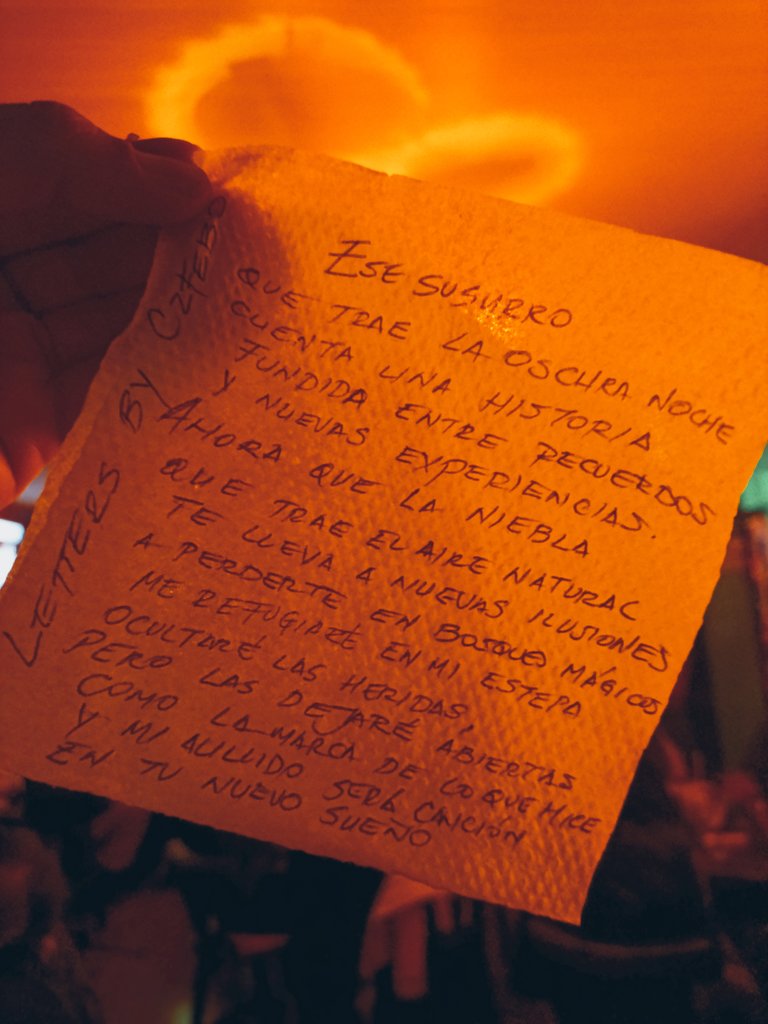 ESE SUSURRO
QUE TRAE LA OSCURA NOCHE
CUENTA UNA HISTORIA
FUNDIDA ENTRE RECUERDOS
Y NUEVAS EXPERIENCIAS.
AHORA QUE LA NIEBLA
QUE TRAE EL AIRE NATURAL
TE LLEVA A NUEVAS ILUSIONES
A PERDERTE EN BOSQUES MÁGICOS
ME REFUGIARÉ EN MI ESTEPA
OCULTARÉ LAS HERIDAS,
PERO LAS DEJARÉ ABIERTAS
COMO LA MARCA DE LO QUE HICE
Y MI AULLIDO SERÁ CANCIÓN
EN TU NUEVO SUEÑO
LETTERS BY CZTEBO